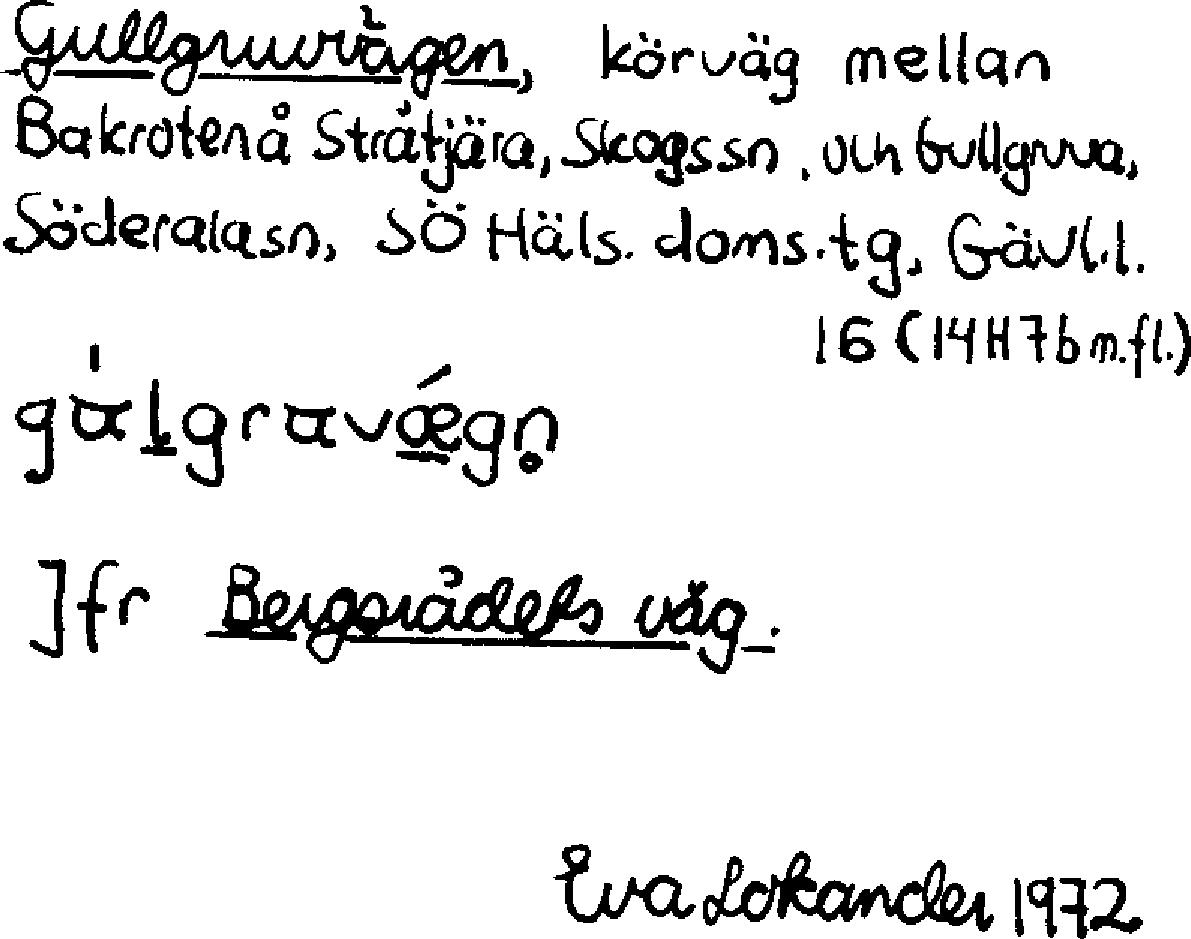 Gullgruvvägen, körväg mellan
Bakroten å Stråtjära, Skogssn, och Gullgruva,
Söderalasn, SÖ Häls. doms.tg, Gävl.l.
16 (14H7b m.fl.)
gὰlgravǽgn̥
Jfr Bergsrådets väg.
Eva Lokander 1972